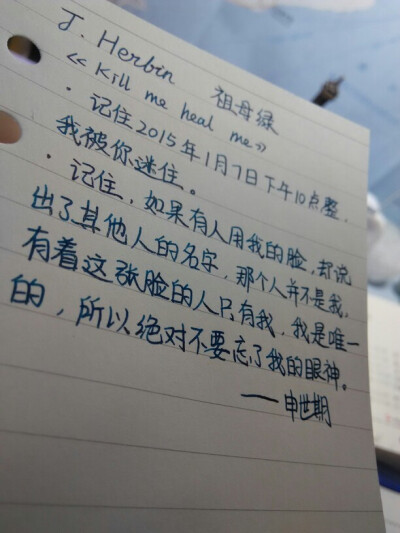 J. Herbin 祖母绿
《Kill me heal me》
· 记住2015年1月7日下午10点整,
我被你迷住。
· 记住,如果有人用我的脸,却说
出了其他人的名字,那个人并不是我。
有着这张脸的人只有我,我是唯一
的,所以绝对不要忘了我的眼神。
——申世期